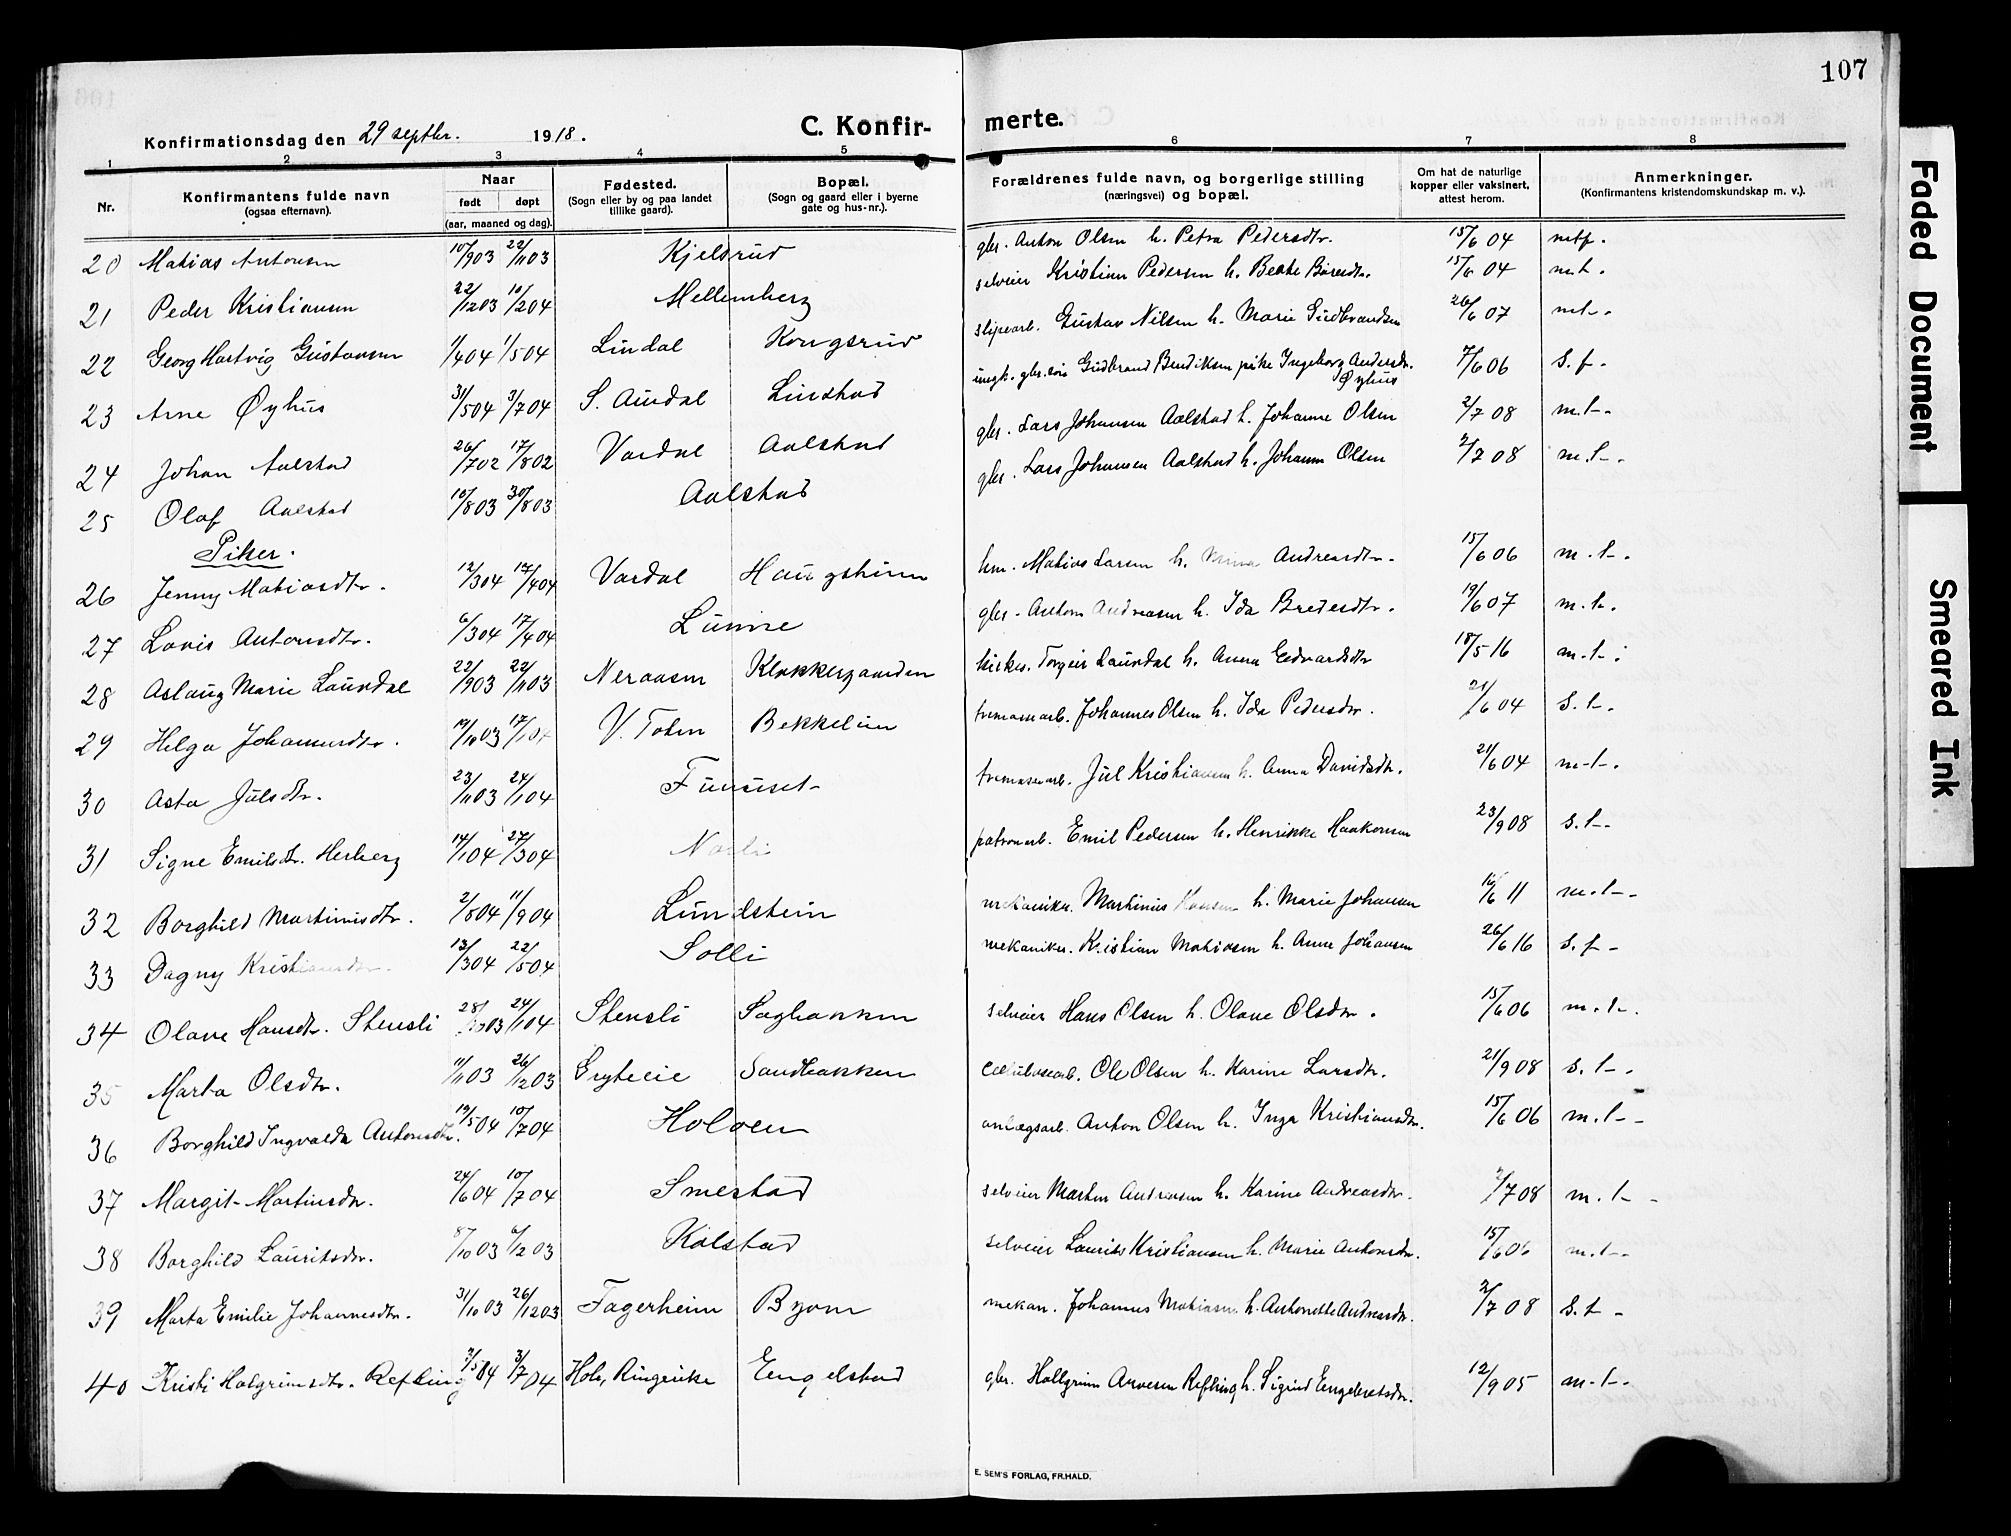 107
Konfirmationsdag den 29 septbr. 1918.
C. Konfirmerte.
1 2 3 4 5 6 7 8
Nr.
Konfirmantens fulde navn
(ogsaa efternavn).
Naar
født døpt
(aar, maaned og dag).
Fødested.
(Sogn eller by og paa landet
tillike gaard).
Bopæl.
(Sogn og gaard eller i byerne
gate og hus-nr.).
Forældrenes fulde navn, og borgerlige stilling
(næringsvei) og bopæl.
Om hat de naturlige
kopper eller vaksinert,
attest herom.
Anmerkninger.
(Konfirmantens kristendomskundskap m. v.).
20 Matias Antonsen 10/9 03 22/11 03 Kjelsrud gbr. Anton Olsen h. Petra Pedersdtr. 15/6 04 mtf.
21 Peder Kristiansen 22/12 03 10/2 04 Mellemberg selveier Kristian Pedersen h. Beate Børesdtr. 15/6 04 m.t.
22 Georg Hartvig Gustavsen 1/4 04 1/5 04 Lindal Kongsrud slipearb. Gustav Nilsen h. Marie Gudbrandsen 26/6 07 m.t.
23 Arne Øyhus 31/5 04 3/7 04 S. Aurdal Linstad ungk. gbr.søn Gudbrand Bendiksen pike Ingeborg Andersdtr. Øyhus 7/6 06 S. f.
24 Johan Aalstad 26/7 02 17/8 02 Vardal Aalstad gbr. Lars Johansen Aalstad h. Johanne Olsen 2/7 08 m.t.
25 Olaf Aalstad 10/8 03 30/8 03 Aalstad gbr. Lars Johansen Aalstad h. Johanne Olsen 2/7 08 m.t.
Piker.
26 Jenny Matiasdtr. 12/3 04 17/4 04 Vardal Haugstuen hm. Matias Larsen h. Andreasdtr. 15/6 06 m.t.
27 Lovis Antonsdtr. 6/3 04 17/4 04 Lunne gbr. Anton Andreasen h. Ida Bredesdtr. 19/6 07 m.t.
28 Aslaug Marie Laundal 22/9 03 22/11 03 Neraasen Klokkergaarden kirkes. Torgeir Laundal h. Anna Edvardsdtr 18/5 16 m.t.
29 Helga Johannesdtr. 19/10 03 17/1 04 V. Toten Bekkelien tremasearb. Johannes Olsen h. Ida Pedersdtr. 21/6 04 S.t.
30 Asta Julsdtr. 23/11 03 24/1 04 Furuset tremassearb. Jul Kristiansen h. Anna Davidsdtr. 21/6 04 m.t.
31 Signe Emilsdtr. Herberg 14/1 04 27/3 04 Norli patronarb. Emil Pedersen h. Henrikke Haakonsen 23/9 08 s.t.
32 Borghild Martinusdtr. 2/8 04 11/9 04 Lundstein mekaniker. Martinus Hansen h. Marie Johansen 16/6 11 m.t.
33 Dagny Kristiansdtr. 13/3 04 22/5 04 Solli mekaniker. Kristian Matiasen h. Anne Johansen 26/6 16 s.f.
34 Olave Hansdtr. Stensli 28/10 03 24/1 04 Stensli Sagbakken selveier Hans Olsen h. Olave Olsdtr. 15/6 06 m.t.
35 Marta Olsdtr. 11/11 03 26/12 03 Gryteeie Sandbakken Cellulosearb. Ole Olsen h. Karine Larsdtr. 21/9 08 s.t.
36 Borghild Ingvalda Antonsdtr. 19/5 04 10/7 04 Holoen anlægsarb. Anton Olsen h. Inga Kristiansdtr. 15/6 06 m.t.
37 Margit Martinsdtr. 24/6 04 10/7 04 Smestad selveier Martin Andreasen h. Karine Andreasdtr. 2/7 08 m.t.
38 Borghild Lauritsdtr. 8/10 03 6/12 03 Kolstad selveier Laurits Kristiansen h. Marie Antonsdtr. 15/6 06 m.t.
39 Marta Emilie Johannesdtr. 31/10 03 26/12 03 Fagerheim Byom mekan. Johannes Matiasen h. Antonette Andreasdtr. 2/7 08 S.t.
40 Kristi Halgrimsdtr. Refling 3/5 04 3/7 04 Hole, Ringerike Engelstad gbr. Hallgrim Arvesen Refling h. Sigrid Engebretsdtr. 12/9 05 m.t.
E. SEM'S FORLAG, FR.HALD.
Faded Document
Smeared Ink